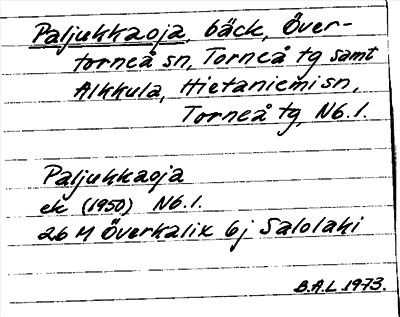 Paljukkaoja, bäck, Över-
torneå sn, Torneå tg samt
Alkkula, Hietaniemi sn,
Torneå tg, Nb.l.
Paljukkaoja
ek (1950) Nb.l.
26 M Överkalix 6j Salolaki
B.A.L 1973.